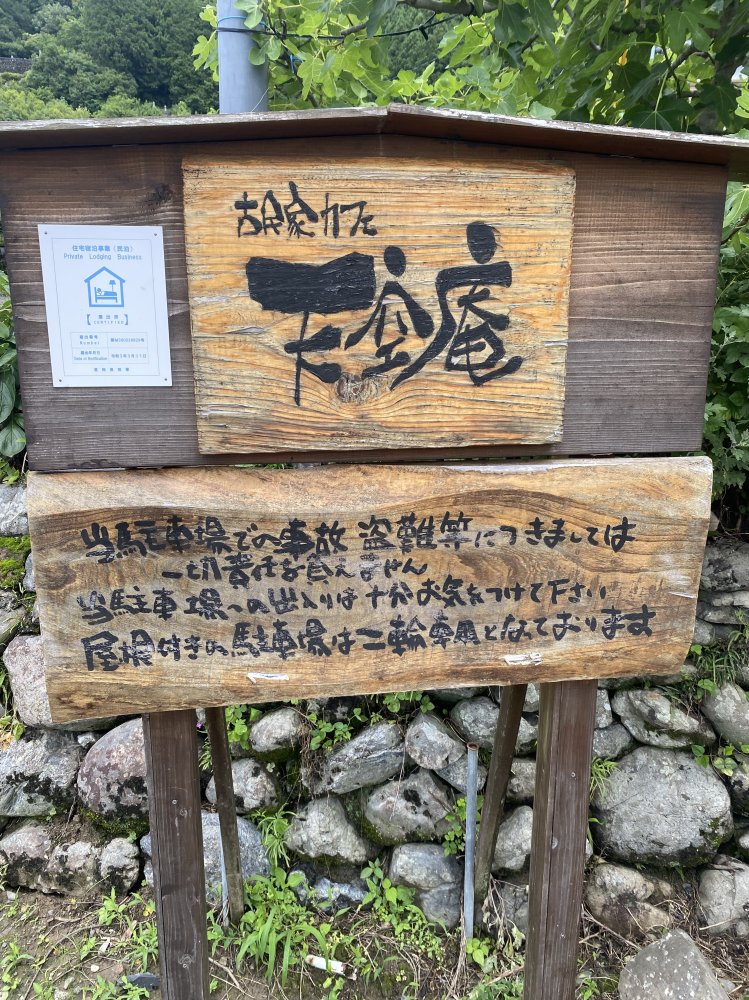 住宅宿泊事業（民泊）
Private Lodging Business
届出済
【CERTIFIED】
届出番号
Number
届出年月日
Date of Notification
古民家カフェ
庵
当駐車場での事故 盗難等につきましては
一切責任お負えません
当駐車場への出入りは十分お気をつけて下さい
屋根付きの駐車場は二輪車用となっております